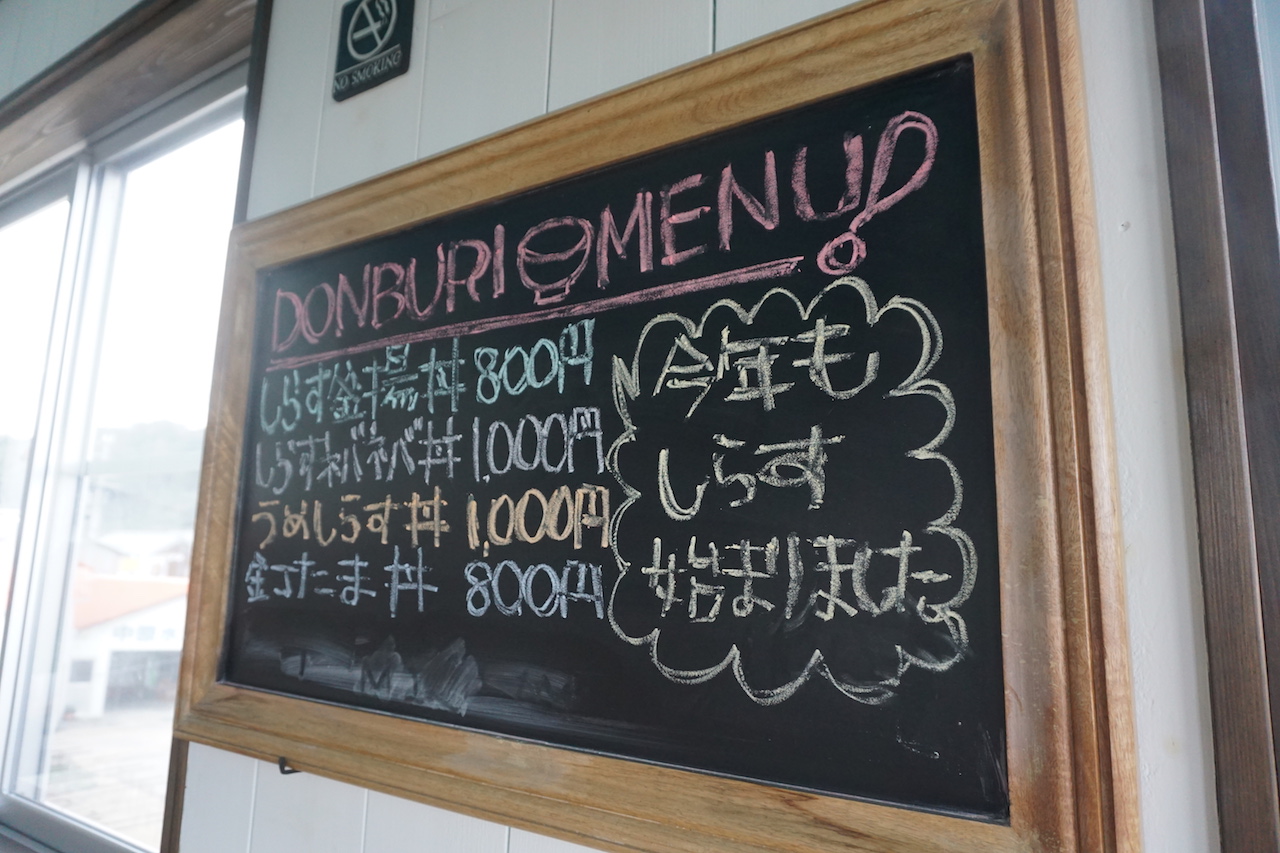 NO SMOKING
DONBURI MENU!
しらす釜揚丼 800円
しらすネバネバ丼 1,000円
うめしらす丼 1,000円
釘たま丼 800円
今年も
しらす
始まりました